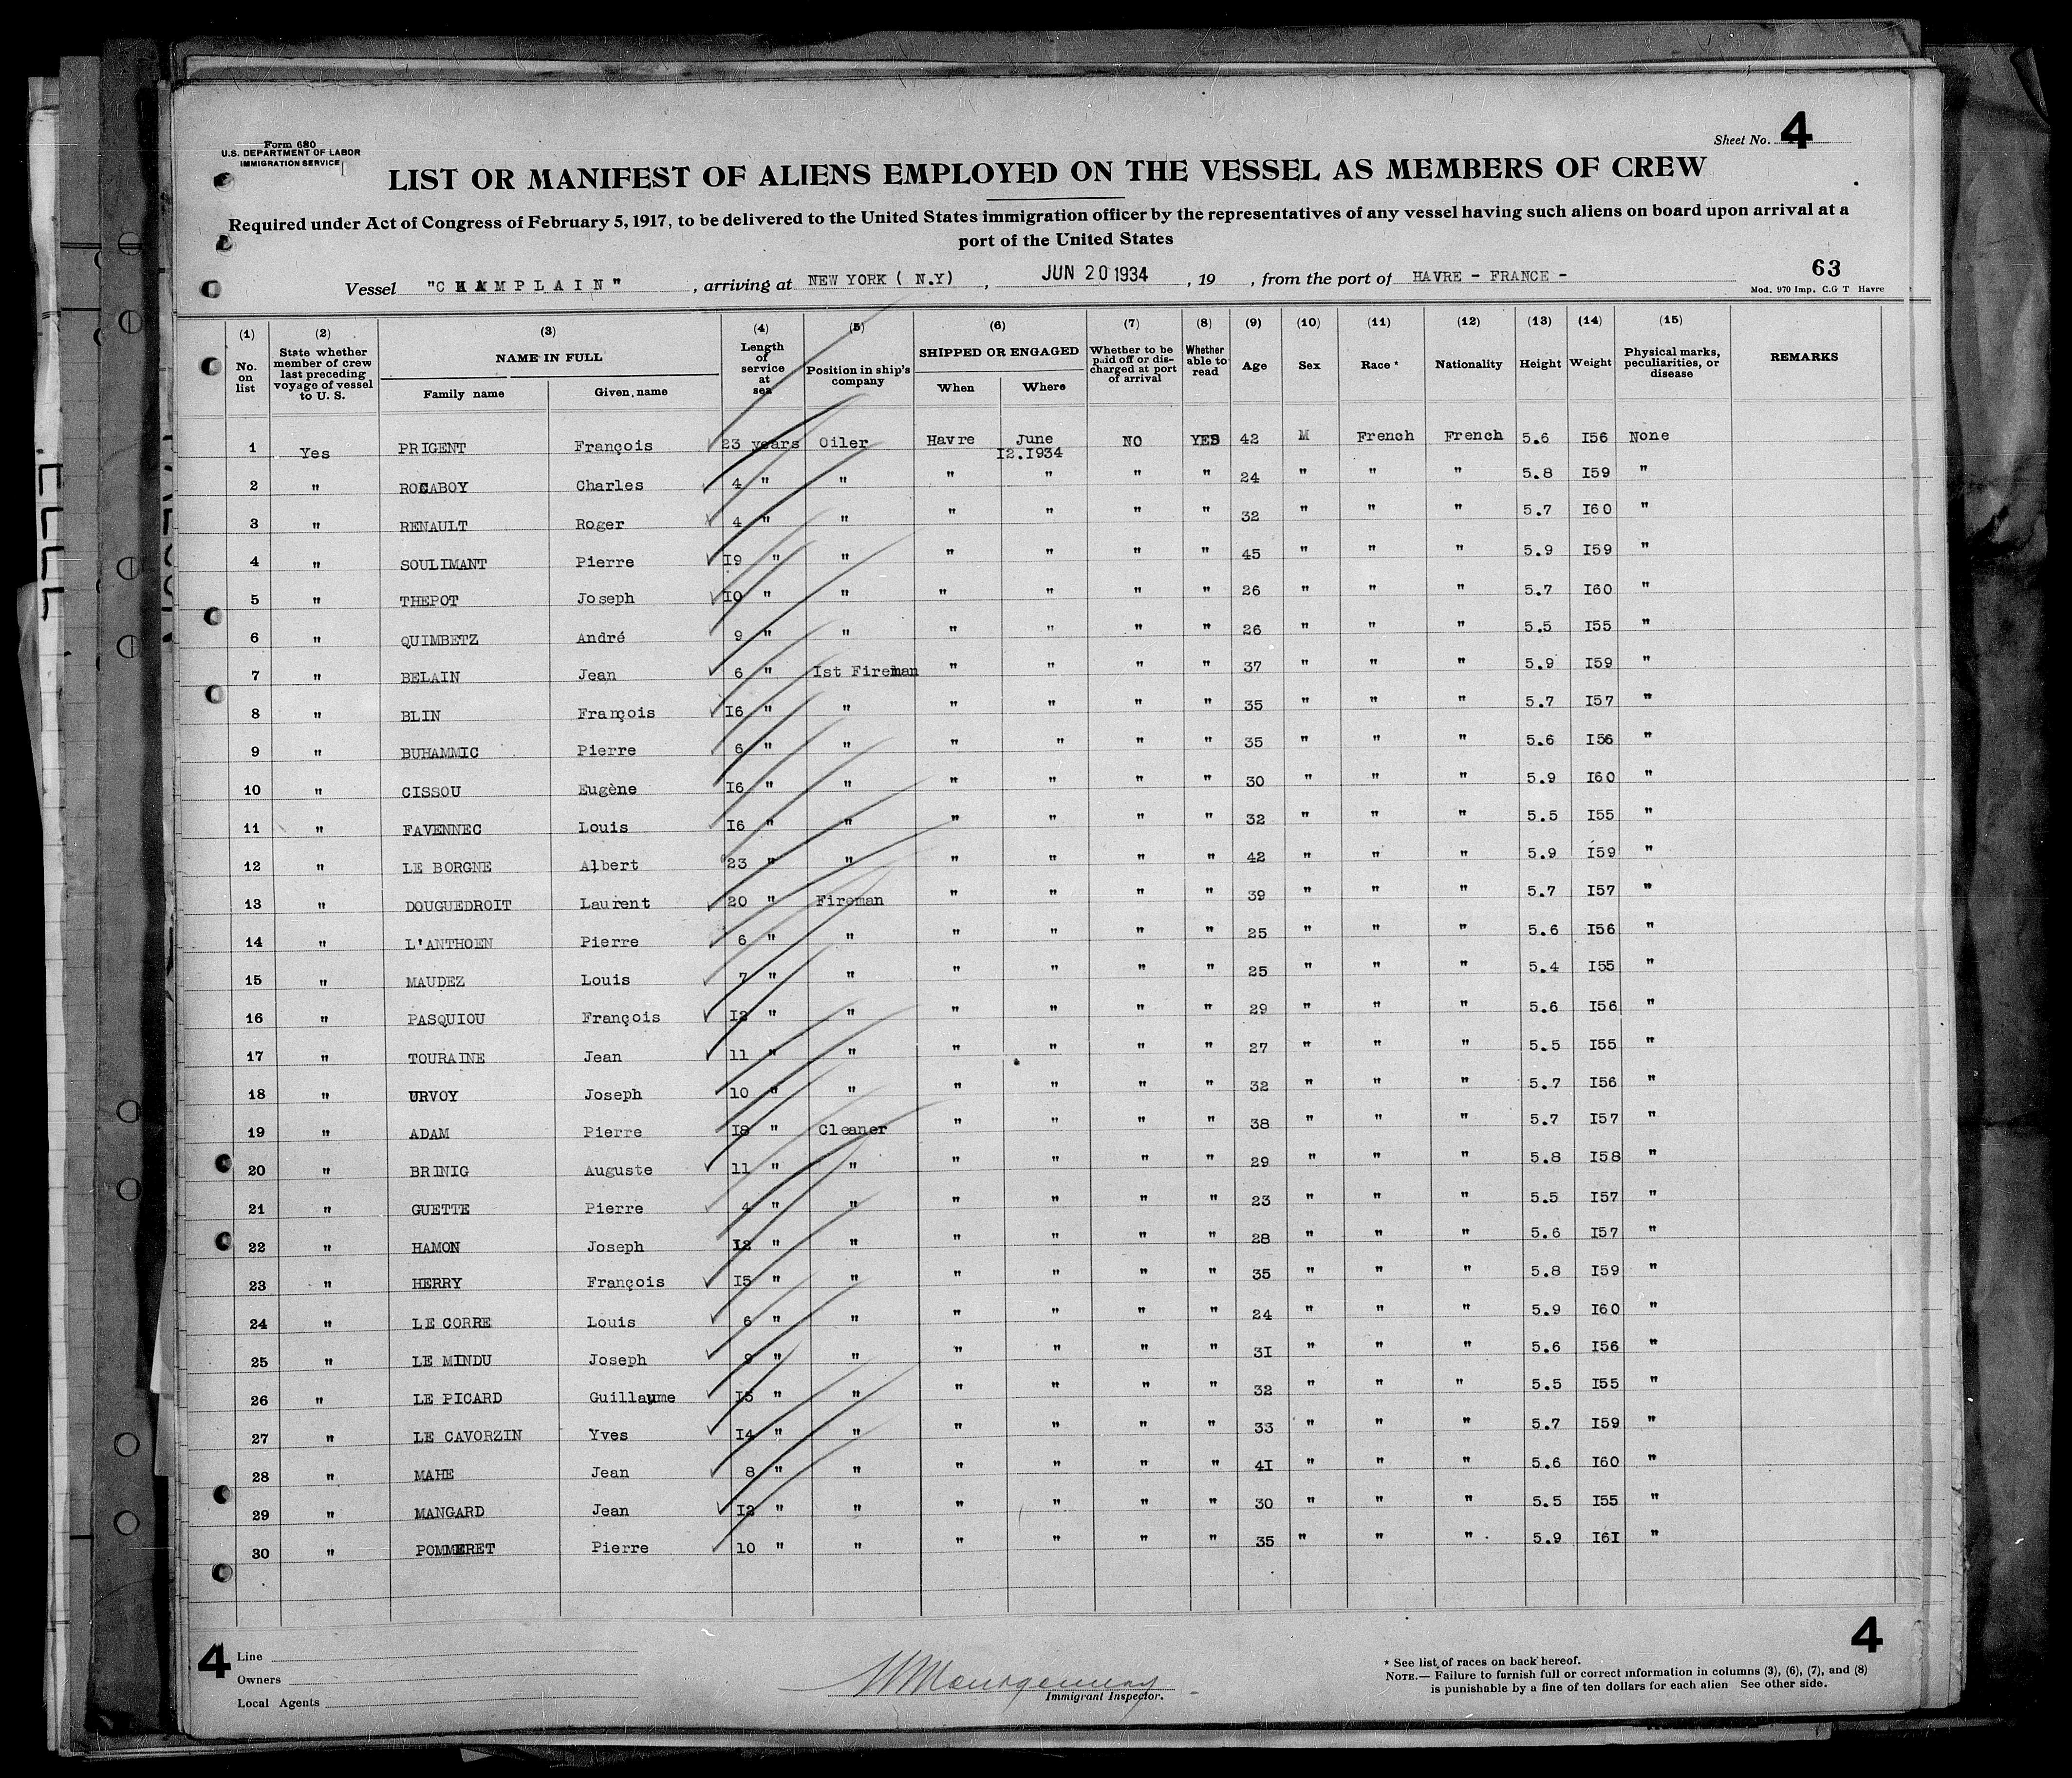 Form 680
U.S. DEPARTMENT OF LABOR
IMMIGRATION SERVICE
Sheet No. 4
LIST OR MANIFEST OF ALIENS EMPLOYED ON THE VESSEL AS MEMBERS OF CREW
Required under Act of Congress of February 5, 1917, to be delivered to the United States immigration officer by the representatives of any vessel having such aliens on board upon arrival at a
port of the United States
63
Vessel "CHAMPLAIN" , arriving at NEW YORK ( N.Y) , JUN 20 1934 , 19 , from the port of HAVRE - FRANCE -
Mod. 970 Imp. C.G T Havre
(1) (2) (3) (4) (5) (6) (7) (8) (9) (10) (11) (12) (13) (14) (15)
No. on list State whether member of crew last preceding voyage of vessel to U. S. NAME IN FULL Family name Given name Length of service at sea Position in ship's company SHIPPED OR ENGAGED When Where Whether to be paid off or discharged at port of arrival Whether able to read Age Sex Race * Nationality Height Weight Physical marks, peculiarities, or disease REMARKS
1 Yes PRIGENT François 23 years Oiler Havre June 12.1934 NO YES 42 M French French 5.6 156 None
2 " ROCABOY Charles 4 " " " " " " 24 " " " 5.8 159 "
3 " RENAULT Roger 4 " " " " " " 32 " " " 5.7 160 "
4 " SOULIMANT Pierre 19 " " " " " " 45 " " " 5.9 159 "
5 " THEPOT Joseph 10 " " " " " " 26 " " " 5.7 160 "
6 " QUIMBETZ André 9 " " " " " " 26 " " " 5.5 155 "
7 " BELAIN Jean 6 " 1st Fireman " " " " 37 " " " 5.9 159 "
8 " BLIN François 16 " " " " " " 35 " " " 5.7 157 "
9 " BUHAMMIC Pierre 6 " " " " " " 35 " " " 5.6 156 "
10 " CISSOU Eugène 16 " " " " " " 30 " " " 5.9 160 "
11 " FAVENNEC Louis 16 " " " " " " 32 " " " 5.5 155 "
12 " LE BORGNE Albert 23 " " " " " " 42 " " " 5.9 159 "
13 " DOUGUEDROIT Laurent 20 " Fireman " " " " 39 " " " 5.7 157 "
14 " L'ANTHOEN Pierre 6 " " " " " " 25 " " " 5.6 156 "
15 " MAUDEZ Louis 7 " " " " " " 25 " " " 5.4 155 "
16 " PASQUIOU François 12 " " " " " " 29 " " " 5.6 156 "
17 " TOURAINE Jean 11 " " " " " " 27 " " " 5.5 155 "
18 " URVOY Joseph 10 " " " " " " 32 " " " 5.7 156 "
19 " ADAM Pierre 18 " Cleaner " " " " 38 " " " 5.7 157 "
20 " BRINIG Auguste 11 " " " " " " 29 " " " 5.8 158 "
21 " GUETTE Pierre 4 " " " " " " 23 " " " 5.5 157 "
22 " HAMON Joseph 12 " " " " " " 28 " " " 5.6 157 "
23 " HERRY François 15 " " " " " " 35 " " " 5.8 159 "
24 " LE CORRE Louis 6 " " " " " " 24 " " " 5.9 160 "
25 " LE MINDU Joseph 9 " " " " " " 31 " " " 5.6 156 "
26 " LE PICARD Guillaume 15 " " " " " " 32 " " " 5.5 155 "
27 " LE CAVORZIN Yves 14 " " " " " " 33 " " " 5.7 159 "
28 " MAHE Jean 8 " " " " " " 41 " " " 5.6 160 "
29 " MANGARD Jean 12 " " " " " " 30 " " " 5.5 155 "
30 " POMMERET Pierre 10 " " " " " " 35 " " " 5.9 161 "
4
4
Line
Owners
Local Agents
Montgomery
Immigrant Inspector.
* See list of races on back hereof.
NOTE.— Failure to furnish full or correct information in columns (3), (6), (7), and (8)
is punishable by a fine of ten dollars for each alien See other side.